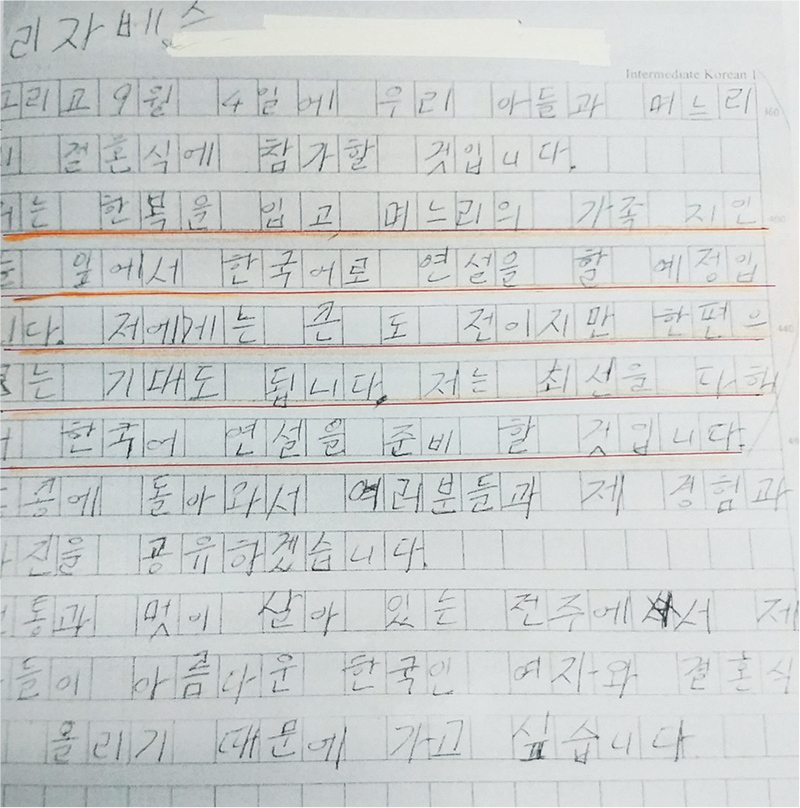 리자베스
Intermediate Korean 1
그리고 9월 4일에 우리 아들과 며느리
결혼식에 참가할 것입니다.
저는 한복을 입고 며느리의 가족 지인
들 앞에서 한국어로 연설을 할 예정입
니다. 저에게는 큰 도 전이지만 한편 으
로는 기대도 됩니다. 저는 최선을 다해
서 한국어 연설을 준비 할 것입니다.
돌아와서 여러분들과 제 경험과
사진을 공유하겠습니다.
전통과 멋이 살아 있는 전주에서 제
아들이 아름다운 한국인 여자와 결혼식
올리기 때문에 가고 싶습니다